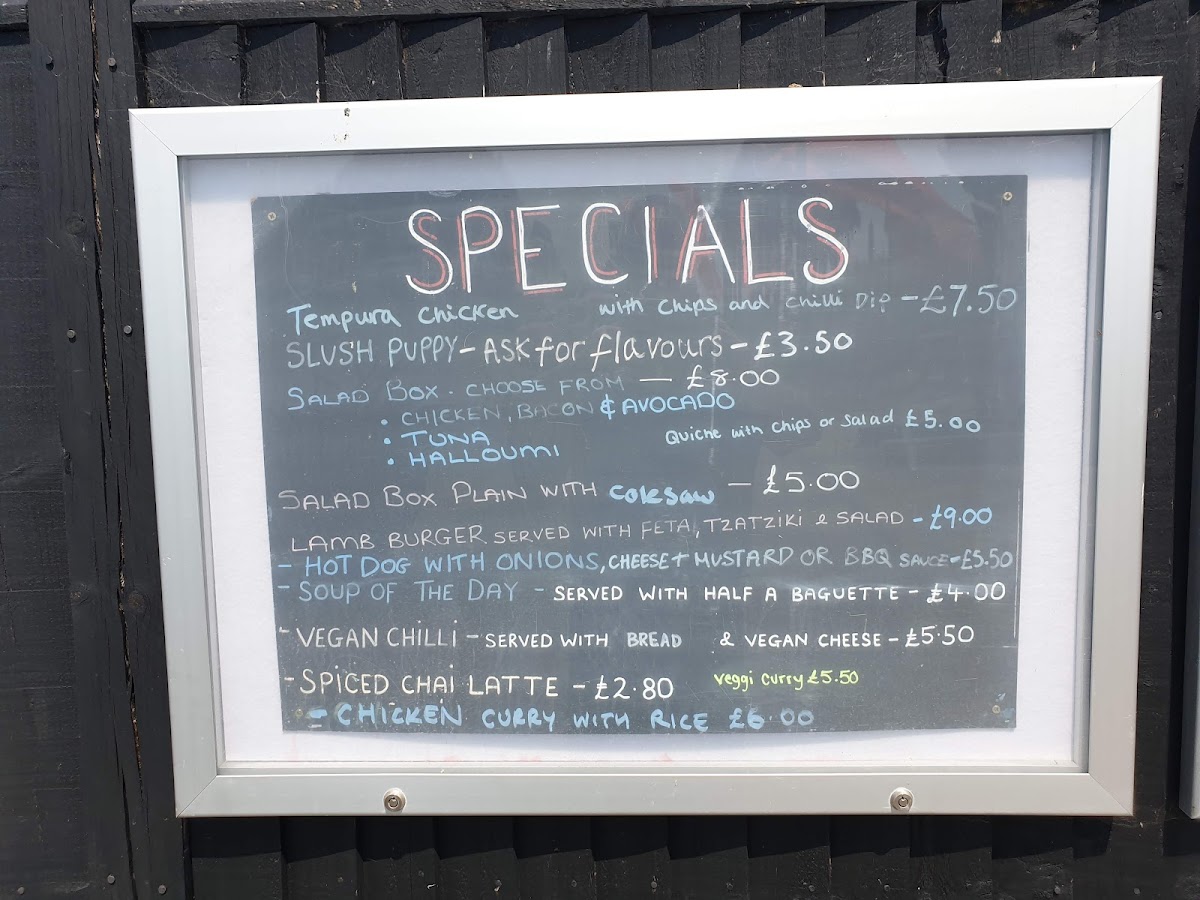 SPECIALS
Tempura chicken with chips and chilli Dip - £7.50
SLUSH PUPPY - ASK for flavours - £3.50
SALAD BOX. CHOOSE FROM — £8.00
• CHICKEN, BACON & AVOCADO
• TUNA
Quiche with chips or salad £5.00
• HALLOUMI
SALAD BOX PLAIN WITH coleslaw — £5.00
LAMB BURGER SERVED WITH FETA, TZATZIKI & SALAD - £9.00
- HOT DOG WITH ONIONS, CHEESE + MUSTARD OR BBQ SAUCE - £5.50
- SOUP OF THE DAY - SERVED WITH HALF A BAGUETTE - £4.00
- VEGAN CHILLI - SERVED WITH BREAD & VEGAN CHEESE - £5.50
- SPICED CHAI LATTE - £2.80
Veggi Curry £5.50
- CHICKEN CURRY WITH RICE £6.00